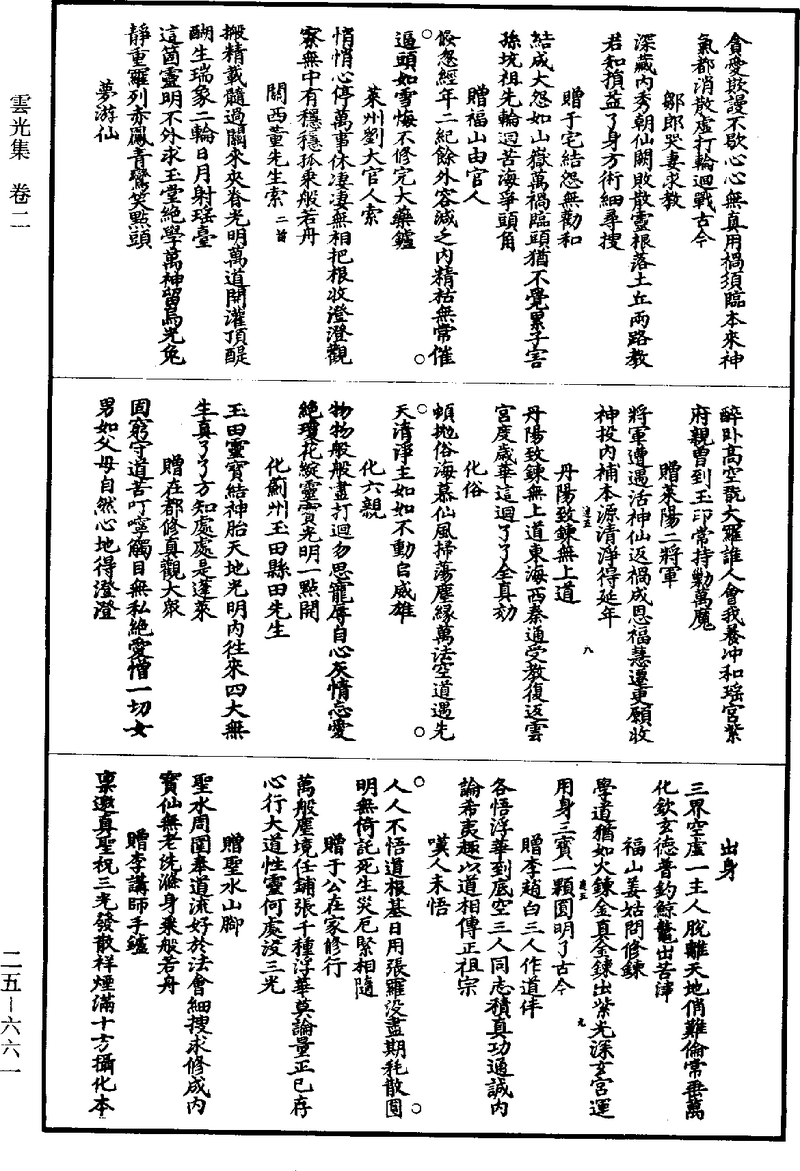 雲光集　卷二
貪愛欺謾不歇心心無真用禍須臨本來神
氣都消散虛打輪迴戰古今
鄒郎哭妻求教
深藏內秀朝仙闕敗散靈根落土丘兩路教
君知損益了身方術細尋搜
贈于宅結怨無勸和
結成大怨如山嶽萬禍臨頭猶不覺累子害
孫坑祖先輪迴苦海爭頭角
贈福山由官人
倐忽經年二紀餘外容減乏內精枯無常催
逼頭如雪悔不修完大藥鑪
萊州劉大官人索
悄悄心停萬事休淒淒無相把根收澄澄觀
察無中有穩穩孤乘般若舟
關西董先生索二首
搬精載髓過關來夾脊光明萬道開灌頂醍
醐生瑞象二輪日月射瑤臺
這箇靈明不外求玉堂絕學萬神留烏光兔
靜重羅列赤鳳青鸞笑點頭
夢游仙
醉卧高空翫大羅誰人會我養冲和瑶宮紫
府親曾到玉印常持勦萬魔
贈萊陽二將軍
將軍遭遇活神仙返禍成恩福慧遷更願收
神投內補本源清淨得延年
八
丹陽致鍊無上道
丹陽致鍊無上道東海西秦通受教復返雲
宮度歲華這迴了了全真効
化俗
頓抛俗海慕仙風掃蕩塵緣萬法空道遇先
天清淨主如如不動自威雄
化六親
物物般般盡打迴勿思寵辱自心灰情忘愛
絕瓊花綻靈寶光明一點開
化薊州玉田縣田先生
玉田靈寶結神胎天地光明內往來四大無
生真了了方知處處是蓬萊
贈在都修真觀大衆
固窮守道苦叮嚀觸目無私絕愛憎一切女
男如父母自然心地得澄澄
出身
三界空虛一主人脫離天地俏難倫常垂萬
化欽玄德普釣鯨鼇出苦津
福山姜姑問修鍊
學道猶如火鍊金真金鍊出紫光深玄宮運
用身三寶一顆圓明了古今
九
贈李趙白三人作道伴
各悟浮華到底空三人同志積真功通誠內
論希夷趣以道相傳正祖宗
嘆人未悟
人人不悟道根基日用張羅没盡期耗散圓
明無倚託死生災厄緊相隨
贈于公在家修行
萬般塵境任鋪張千種浮華莫論量正已存
心行大道性靈何處没三光
贈聖水山腳
聖水周圍奉道流好於法會細搜求修成內
寶仙無老洗滌身乘般若舟
贈李講師手鑪
稟邀真聖祝三光發散祥煙滿十方攝化本
二五－六六一